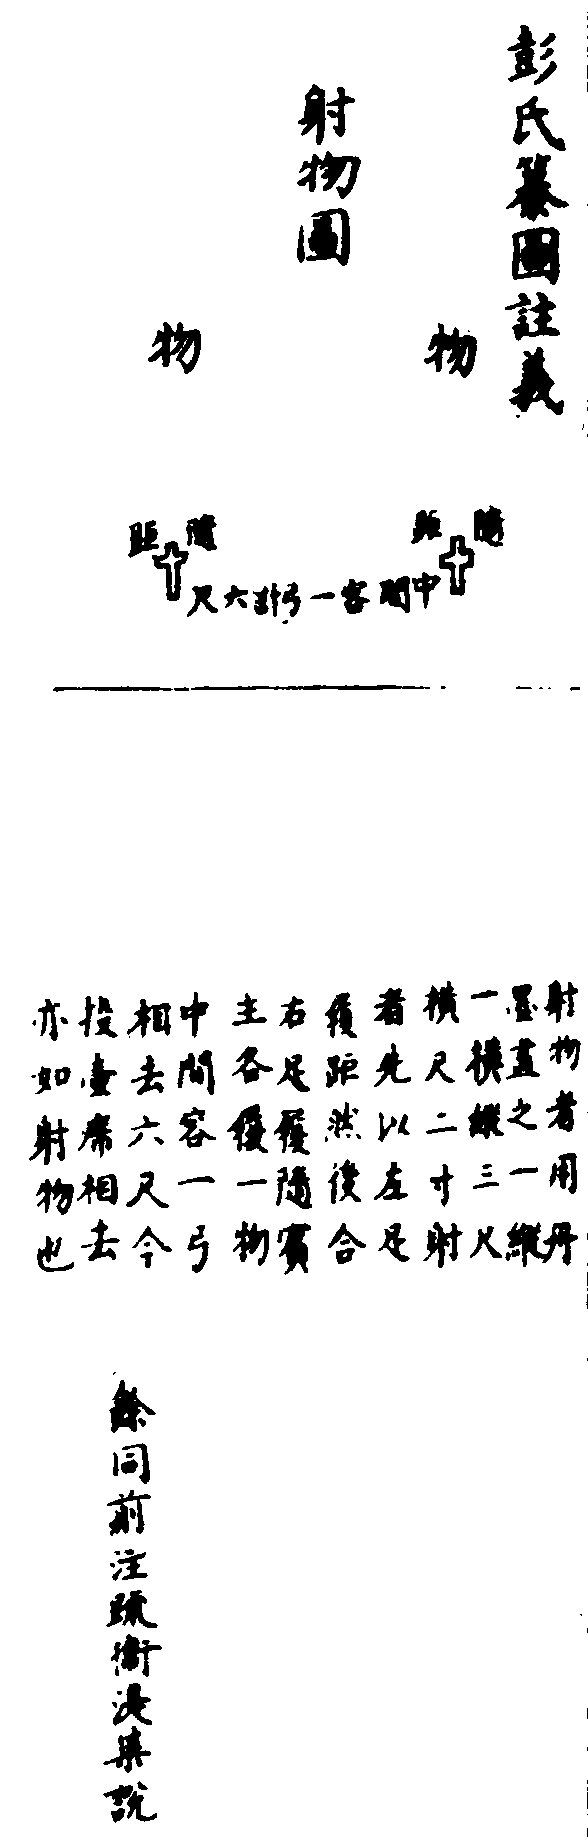 彭氏纂圖註義
射物圖
物
物
距 隨
距 隨
中間容一弓計六尺
射物者用丹
墨畫之一縱
一橫縱三尺
橫尺二寸射
者先以左足
履距然後合
右足履隨賓
主各履一物
中間容一弓
相去六尺今
投壺席相去
亦如射物也
餘同前注疏衛湜集說